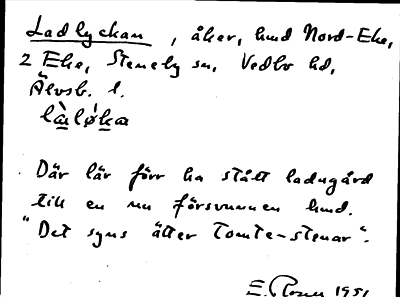 Ladlyckan, åker, hmd Nord-Eke,
2 Eke, Steneby sn, Vedbo hd,
Älvsb. l.
làløka
Där lär förr ha stått ladugård
till en nu försvunnen hmd.
"Det syns ätter Tomte-stenar".
E. 1951